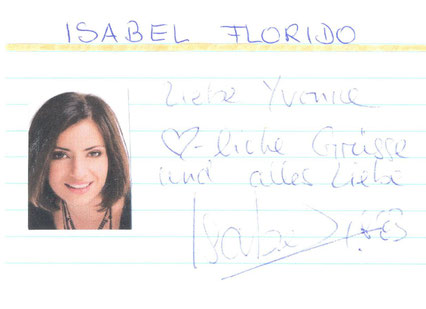 ISABEL FLORIDO
Liebe Yvonne
♡-liche Grüsse
und alles Liebe
Isabel